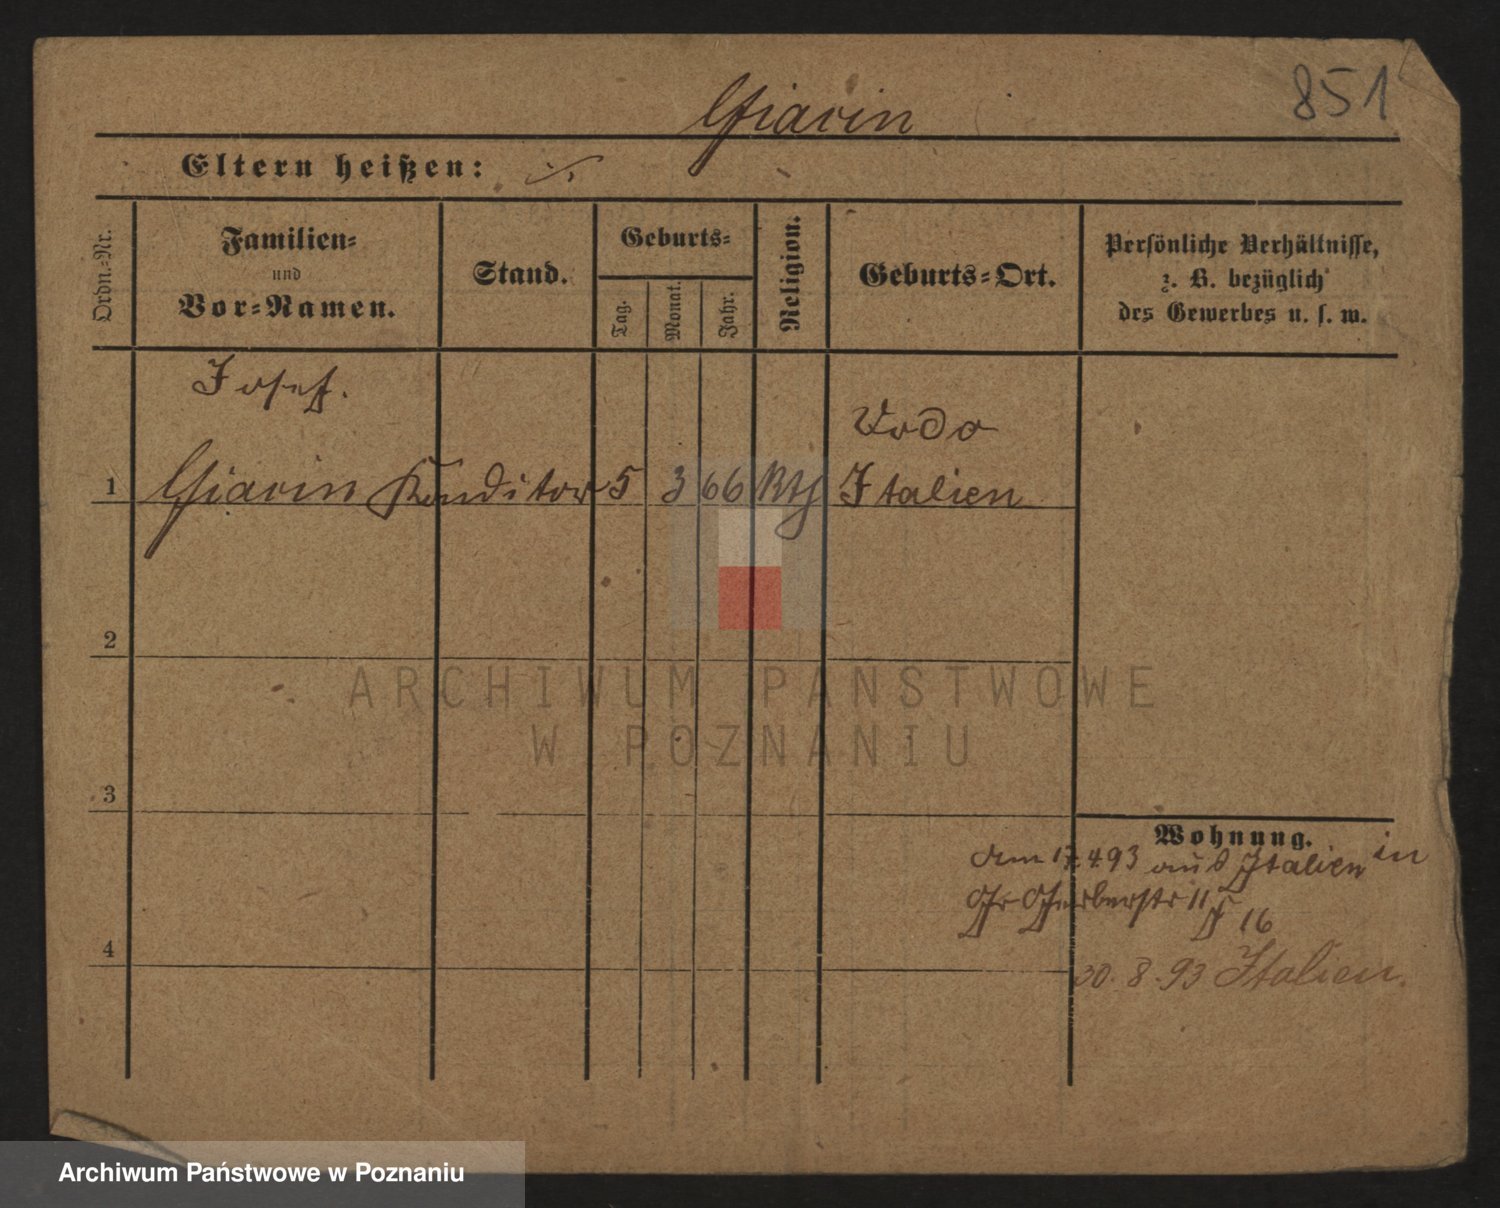 851
Giavin
Eltern heißen: ./.
Ordn.=Nr.
Familien=
und
Vor=Namen.
Stand.
Geburts=
Tag.
Monat.
Jahr.
Religion.
Geburts=Ort.
Persönliche Verhältnisse,
z. B. bezüglich
des Gewerbes u. s. w.
Josef.
Vodo
1 Giavin Konditor 5 3 66 Kth Italien
2
ARCHIWUM PAŃSTWOWE
W POZNANIU
3
Wohnung.
Am 17.4.93 aus Italien in
Gr Gerberstr 11
16
4
30.8.93 Italien.
Archiwum Państwowe w Poznaniu